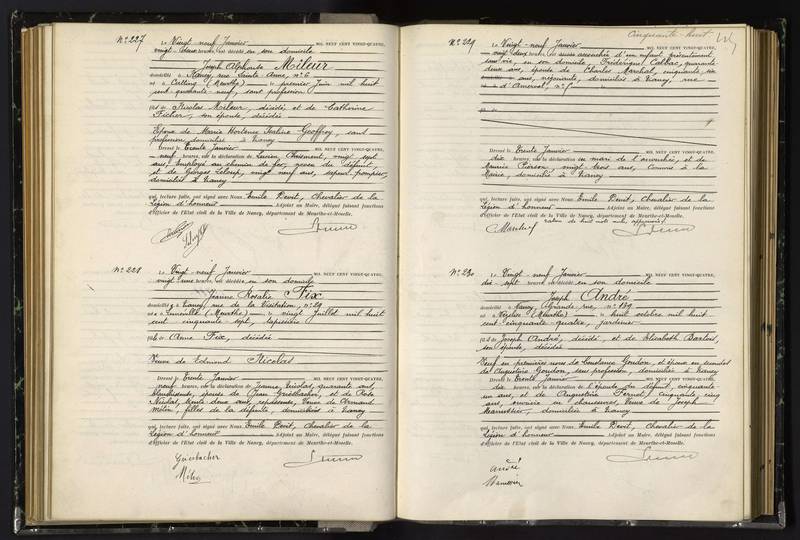 N° 227
Le Vingt neuf Janvier MIL NEUF CENT VINGT-QUATRE,
vingt deux heures est décédé en son domicile
Joseph Alphonse Mileur
domicilié à Nancy, rue Sainte Anne, n° 6
né à Cutting (Meurthe) le premier Juin mil huit
cent quarante-neuf, sans profession
fils de Nicolas Mileur, décédé et de Catherine
Ficher, son épouse, décédée
Epoux de Marie Hortense Geoffroy, sans
profession, domiciliée à Nancy
Dressé le Trente Janvier MIL NEUF CENT VINGT-QUATRE,
neuf heures, sur la déclaration de Lucien Choisment, vingt sept
ans, employé au chemin de fer, neveu du défunt,
et de Georges Leloup, vingt neuf ans, sapeur pompier,
domiciliés à Nancy
qui, lecture faite, ont signé avec Nous Emile Devit, Chevalier de la
Légion d'honneur Adjoint au Maire, délégué faisant fonctions
d'Officier de l'Etat civil de la Ville de Nancy, département de Meurthe-et-Moselle.
N° 228
Le Vingt-neuf Janvier MIL NEUF CENT VINGT-QUATRE,
vingt une heures est décédée en son domicile
Jeanne Rosalie Fix
domiciliée à Nancy, rue de la Visitation, n° 29
née à Lunéville (Meurthe) le vingt Juillet mil huit
cent cinquante sept, tapissière
fille de Anne Fix, décédée
Veuve de Edmond Nicolas
Dressé le Trente Janvier MIL NEUF CENT VINGT-QUATRE,
neuf heures, sur la déclaration de Jeanne Nicolas, quarante ans,
épouse de Jean Griesbacher, et de Rose
Nicolas, trente deux ans, Veuve de Armand
Métin, filles de la défunte, domiciliées à Nancy
qui, lecture faite, ont signé avec Nous Emile Devit, Chevalier de la
Légion d'honneur Adjoint au Maire, délégué faisant fonctions
d'Officier de l'Etat civil de la Ville de Nancy, département de Meurthe-et-Moselle.
Griesbacher
Cinquante-huit
N° 229
Le Vingt-neuf Janvier MIL NEUF CENT VINGT-QUATRE,
vingt deux heures est accouchée d'un enfant présentement
sans vie, en son domicile, Frédérique Calbac, quarante
deux ans, épouse de Charles Marchal, cinquante six
ans, négociants, domiciliés à Nancy, rue
d'Amerval, n°
Dressé le Trente Janvier MIL NEUF CENT VINGT-QUATRE,
dix heures, sur la déclaration du mari de l'accouchée, et de
Maurice Pierson, vingt trois ans, Commis à la
Mairie, domicilié à Nancy
qui, lecture faite, ont signé avec Nous Emile Devit, Chevalier de la
Légion d'honneur Adjoint au Maire, délégué faisant fonctions
d'Officier de l'Etat civil de la Ville de Nancy, département de Meurthe-et-Moselle.
N° 230
Le Vingt-neuf Janvier MIL NEUF CENT VINGT-QUATRE,
dix sept heures est décédé en son domicile
Joseph André
domicilié à Nancy, rue, n° 139
né à Vézelise (Meurthe) le huit octobre mil huit
cent cinquante quatre, jardinier
fils de Joseph André, décédé, et de Elisabeth Bartois,
son épouse, décédée
Veuf en premières noces de Constance Goudon, et époux en secondes
de Augustine Goudon, sans profession, domiciliée à Nancy
Dressé le Trente Janvier MIL NEUF CENT VINGT-QUATRE,
dix heures, sur la déclaration de l'épouse du défunt, cinquante
un ans, et de Augustine Fernel, cinquante cinq
ans, ouvrière en chaussures, Veuve de Joseph
domiciliée à Nancy
qui, lecture faite, ont signé avec Nous Emile Devit, Chevalier de la
Légion d'honneur Adjoint au Maire, délégué faisant fonctions
d'Officier de l'Etat civil de la Ville de Nancy, département de Meurthe-et-Moselle.
André